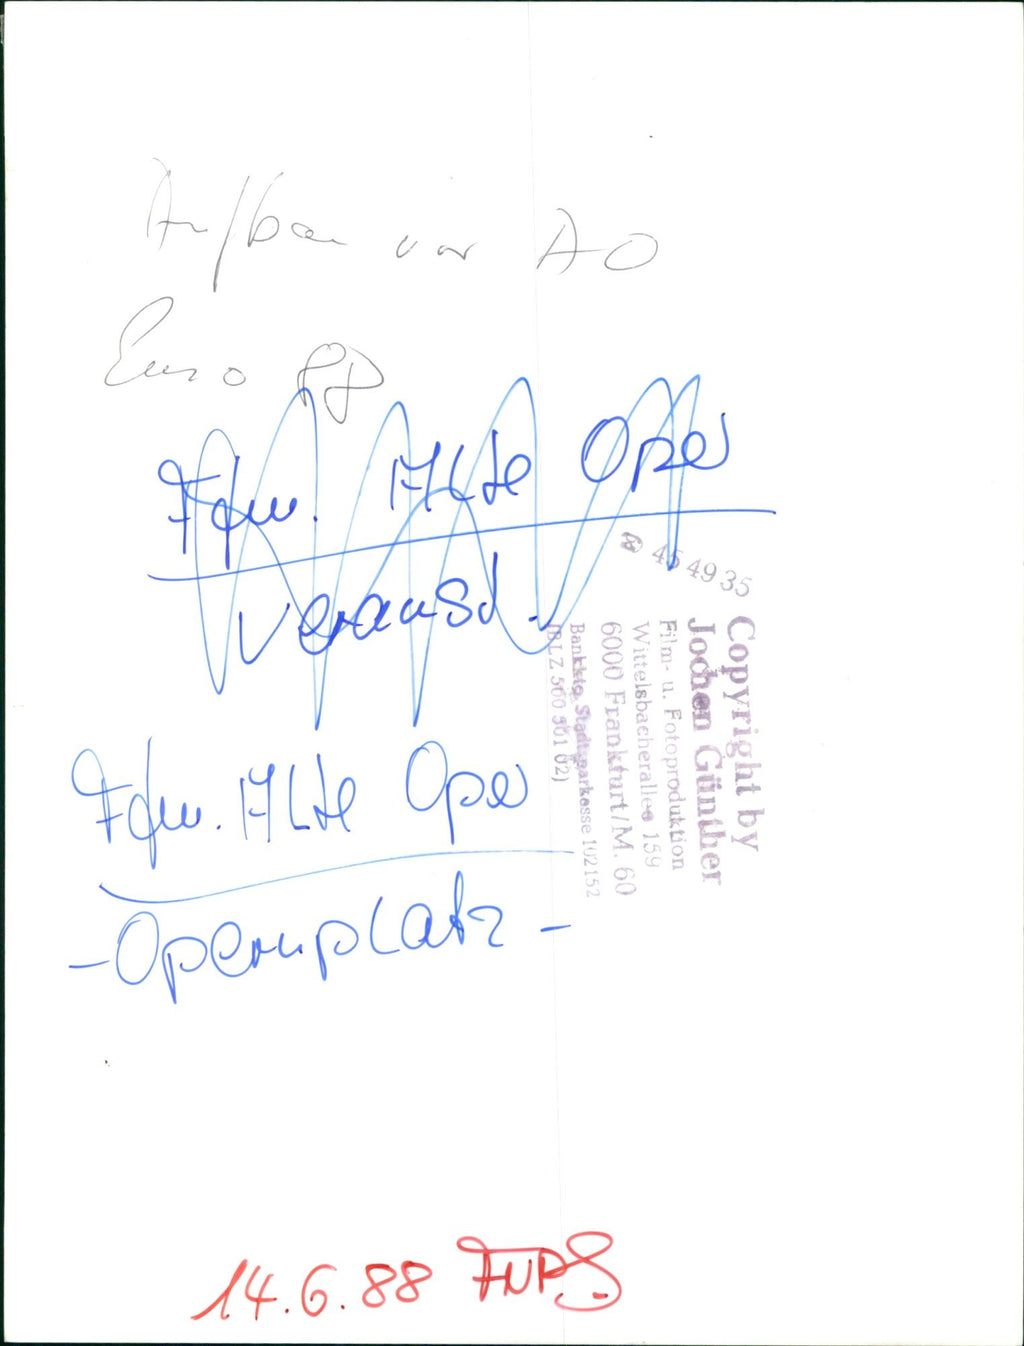 Aufbau vor AO
Euro 88
Ffm. Alte Oper
Veranst.
☎ 45 49 35
Copyright by
Jochen Günther
Film- u. Fotoproduktion
Wittelsbacherallee 159
6000 Frankfurt/M. 60
Bankkto. Stadtsparkasse 102152
(BLZ 500 501 02)
Ffm. Alte Oper
- Opernplatz -
14.6.88 FNP